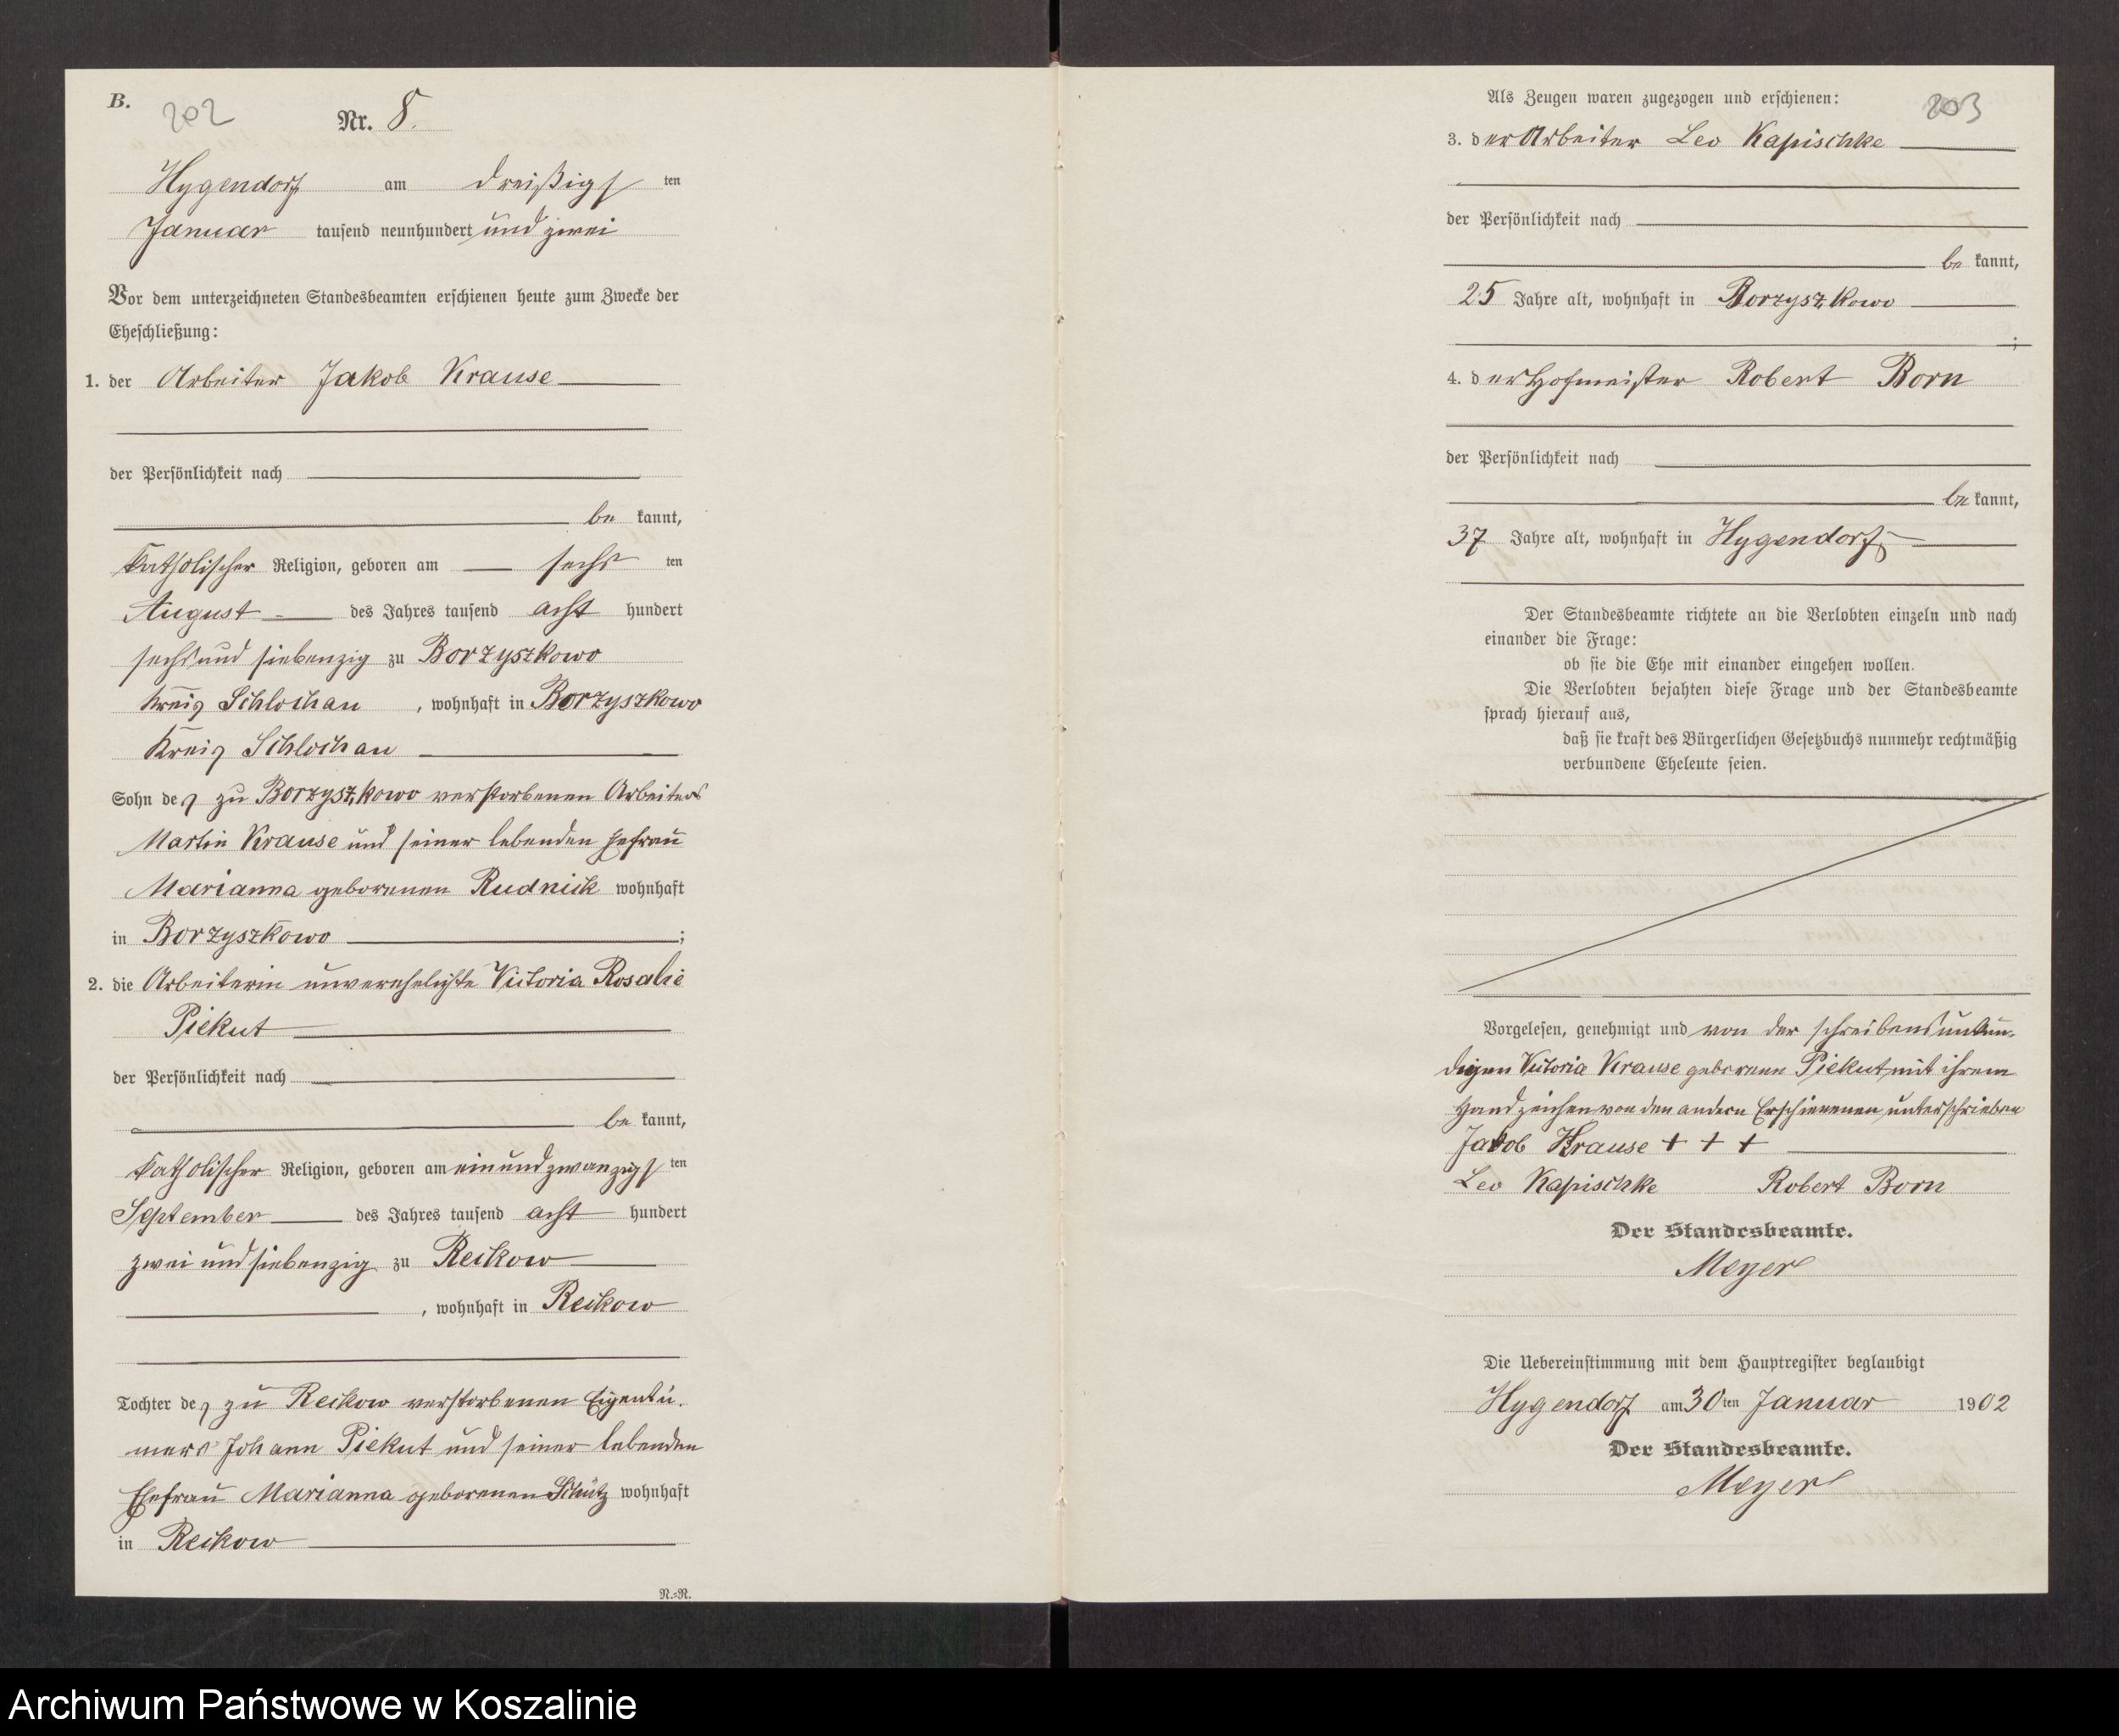 B.
202
Nr. 8.
Hygendorf am dreißigs ten
Januar tausend neunhundert und zwei
Vor dem unterzeichneten Standesbeamten erschienen heute zum Zwecke der
Eheschließung:
1. der Arbeiter Jakob Krause
der Persönlichkeit nach
be kannt,
katholischer Religion, geboren am sechs ten
August des Jahres tausend acht hundert
sechs und siebenzig zu Borzyszkowo
Kreis Schlochau, wohnhaft in Borzyszkowo
Kreis Schlochau
Sohn des zu Borzyszkowo verstorbenen Arbeiters
Martin Krause und seiner lebenden Ehefrau
Marianna geborenen Rudnick wohnhaft
in Borzyszkowo ;
2. die Arbeiterin unverehelichte Victoria Rosalie
Piekut
der Persönlichkeit nach
be kannt,
katholischer Religion, geboren am ein und zwanzigs ten
September des Jahres tausend acht hundert
zwei und siebenzig zu Reckow
, wohnhaft in Reckow
Tochter des zu Reckow verstorbenen Eigentü-
mers Johann Piekut und seiner lebenden
Ehefrau Marianna geborenen Schütz wohnhaft
in Reckow
N.-R.
Als Zeugen waren zugezogen und erschienen:
203
3. der Arbeiter Leo Kapischke
der Persönlichkeit nach
be kannt,
25 Jahre alt, wohnhaft in Borzyszkowo
;
4. der Hofmeister Robert Born
der Persönlichkeit nach
be kannt,
37 Jahre alt, wohnhaft in Hygendorf,
Der Standesbeamte richtete an die Verlobten einzeln und nach
einander die Frage:
ob sie die Ehe mit einander eingehen wollen.
Die Verlobten bejahten diese Frage und der Standesbeamte
sprach hierauf aus,
daß sie kraft des Bürgerlichen Gesetzbuchs nunmehr rechtmäßig
verbundene Eheleute seien.
Vorgelesen, genehmigt und von der schreibensunkun-
digen Victoria Krause geborene Piekut mit ihrem
Handzeichen von den andern Erschienenen unterschrieben
Jakob Krause + + +
Leo Kapischke Robert Born
Der Standesbeamte.
Meyer
Die Uebereinstimmung mit dem Hauptregister beglaubigt
Hygendorf am 30ten Januar 1902
Der Standesbeamte.
Meyer
Archiwum Państwowe w Koszalinie